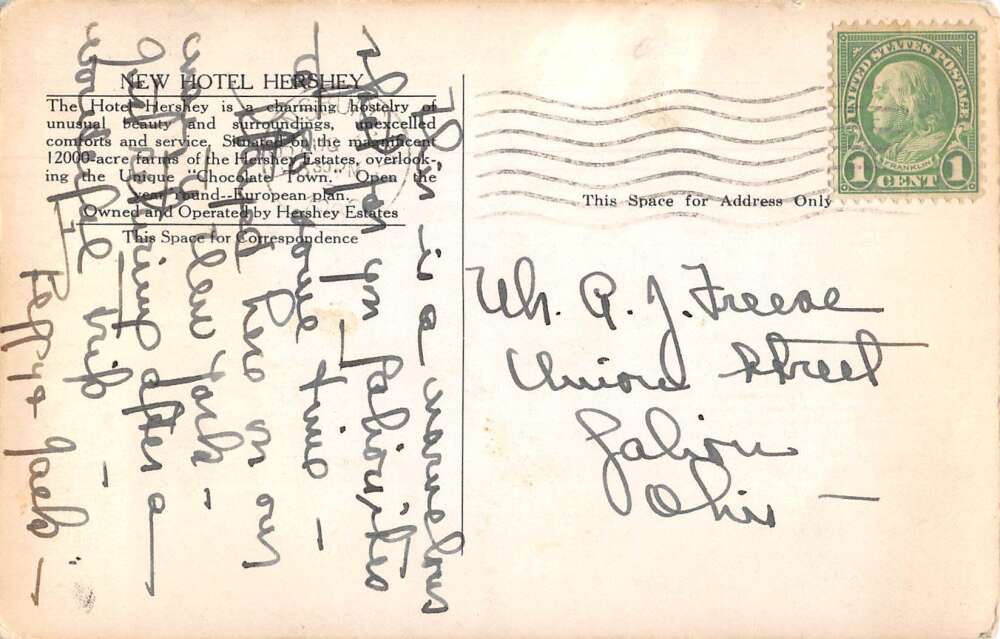 NEW HOTEL HERSHEY
The Hotel Hershey is a charming hostelry of
unusual beauty and surroundings, unexcelled
comforts and service. Situated on the magnificent
12000-acre farms of the Hershey Estates, overlook-
ing the Unique "Chocolate Town." Open the
year round--European plan.
Owned and Operated by Hershey Estates
This Space for Correspondence
This is a marvelous
stop for you Galionites
at some time -
Stopped here on our
way to New York -
Just returning after a
beautiful trip -
Jack -
This Space for Address Only
UNITED STATES POSTAGE
FRANKLIN
1 CENT 1
A. J. Freese
Union Street
Galion
Ohio -